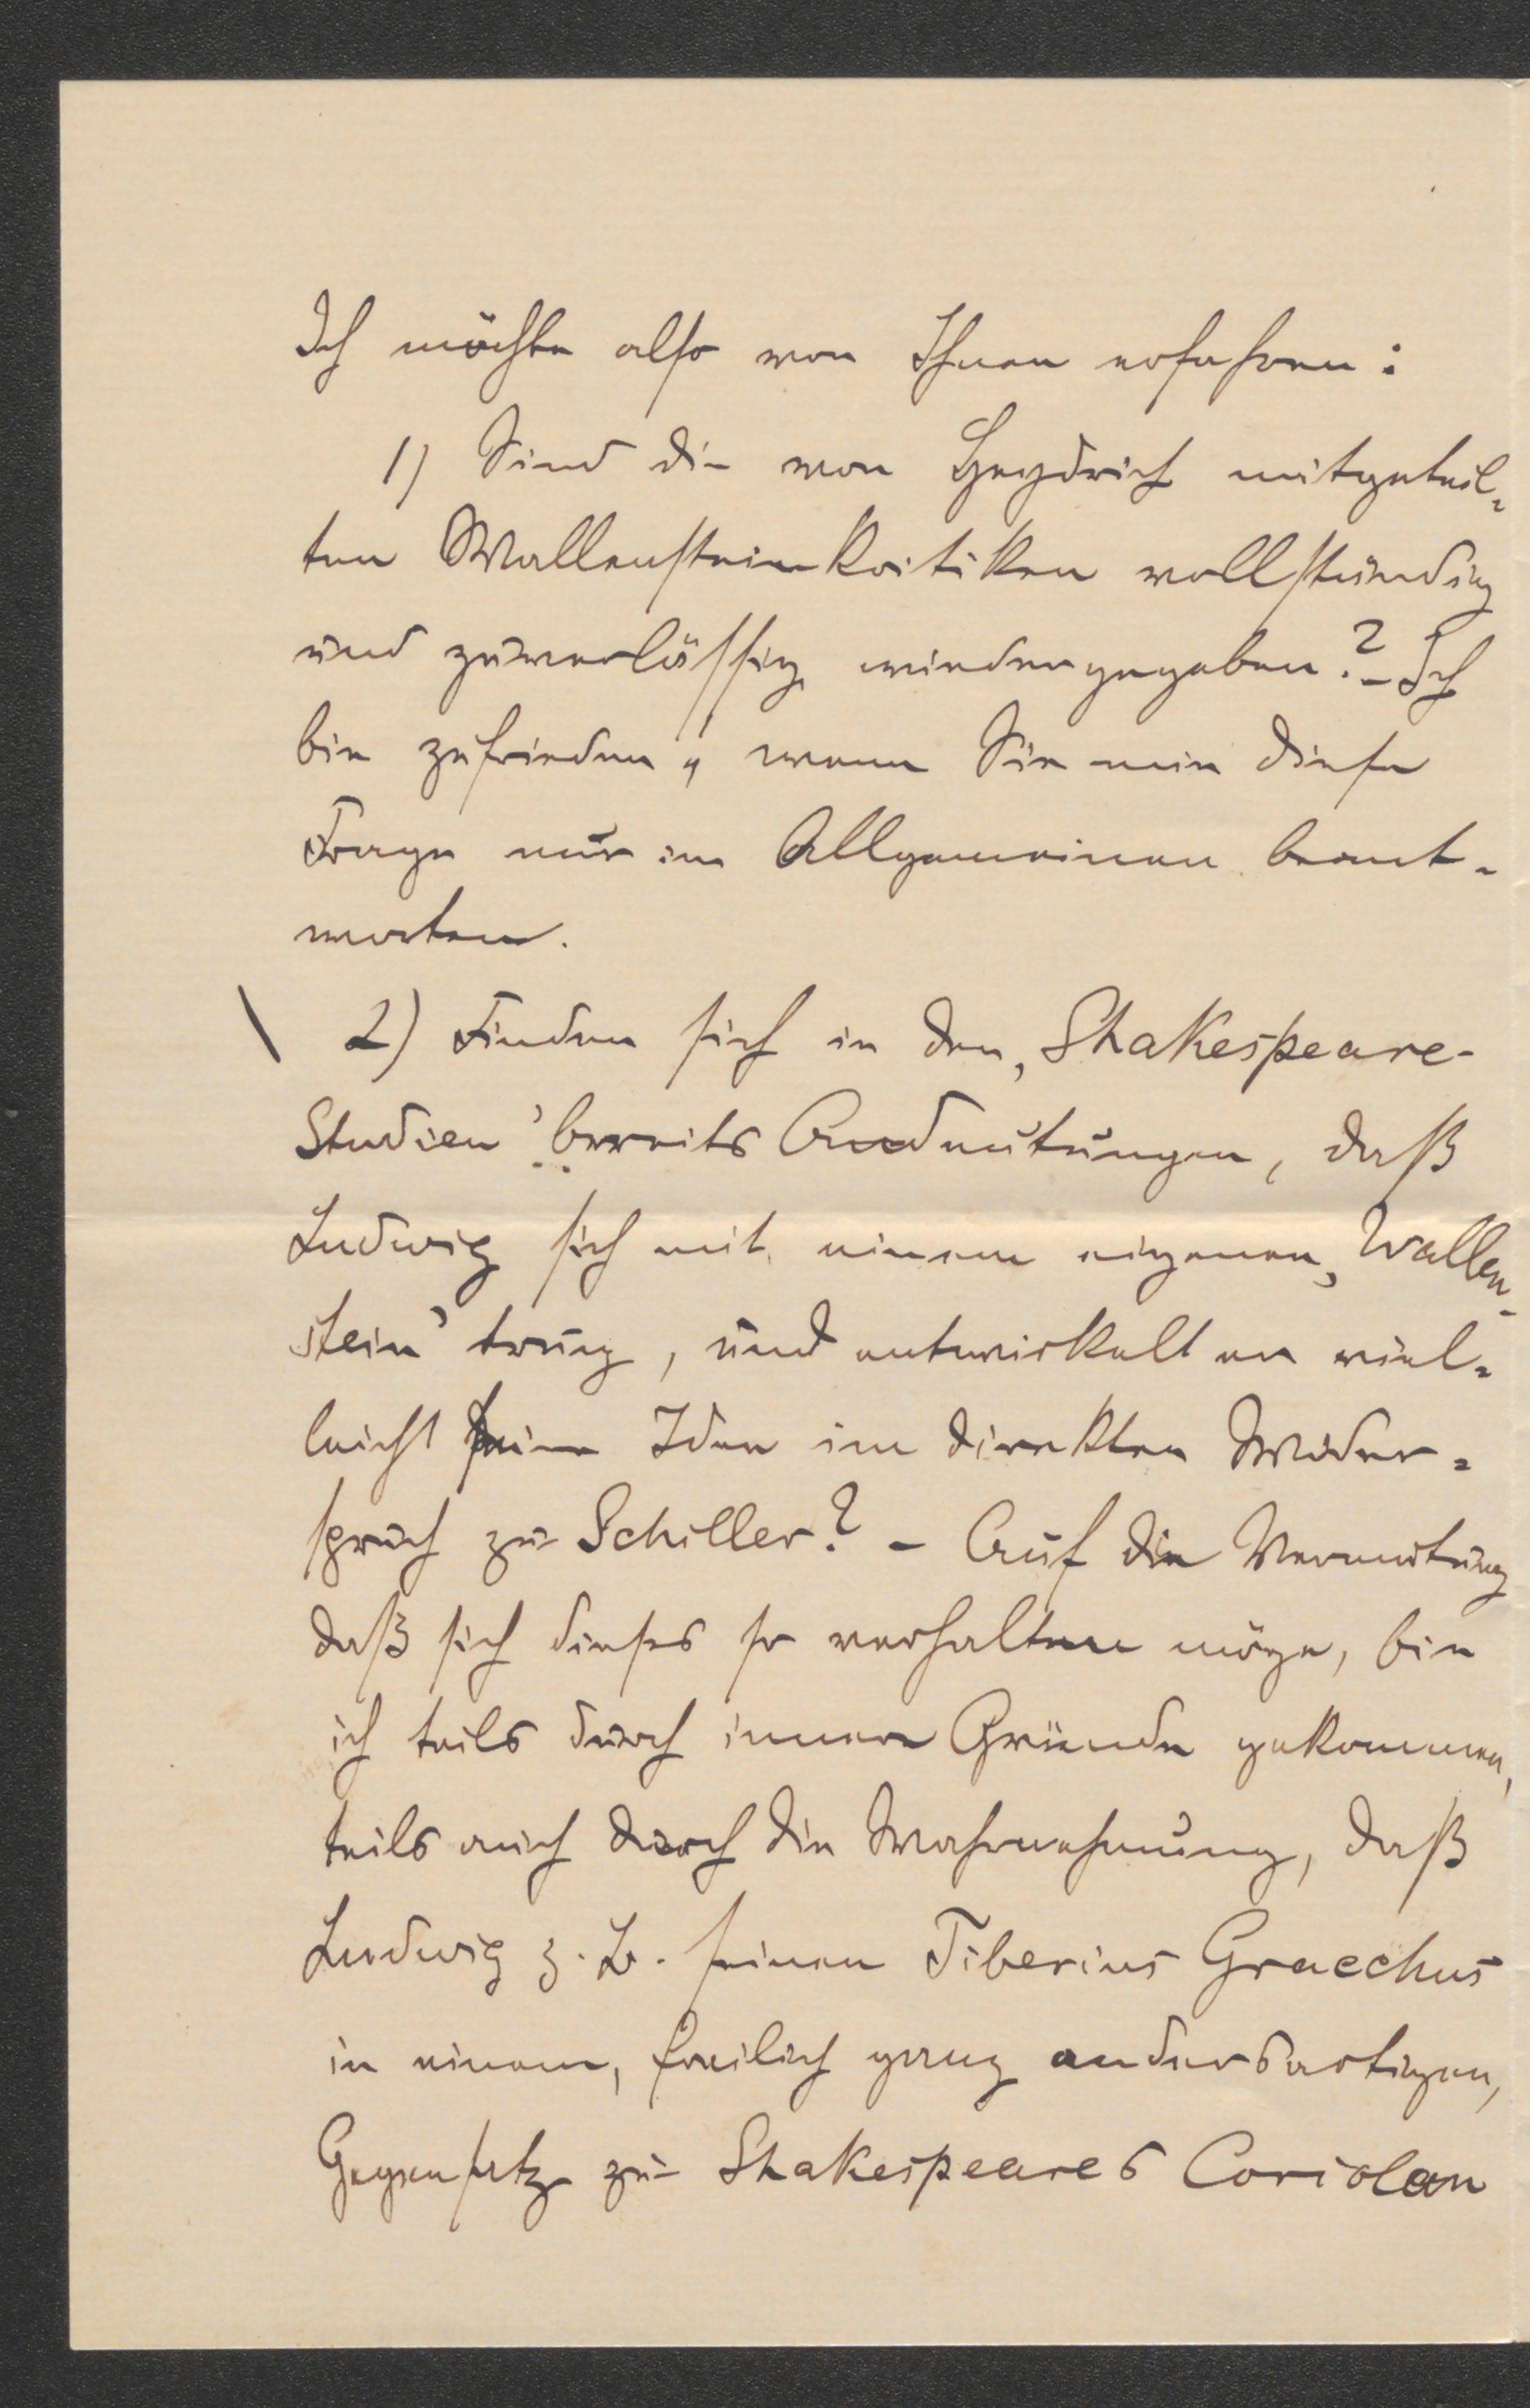 Ich möchte also von Ihnen erfahren:
1) Sind die von Heydrich mitgeteil-
ten Wallensteinkritiken vollständig
und zuverlässig wiedergegeben? – Ich
bin zufrieden, wenn Sie mir diese
Frage nur im Allgemeinen beant-
worten.
2) Finden sich in den ‚Shakespeare-
Studien’ bereits Andeutungen, daß
Ludwig sich mit einem eigenen ‚Wallen-
stein’ trug, und entwickelt er viel-
leicht seine Idee im direkten Wider-
spruch zu Schiller? – Auf die Vermutung
daß sich dieses so verhalten möge, bin
ich teils durch innere Gründe gekommen,
teils auch durch die Wahrnehmung, daß
Ludwig z. B. seinen Tiberius Gracchus
in einem, freilich ganz andersartigen,
Gegensatz zu Shakespeares Coriolan